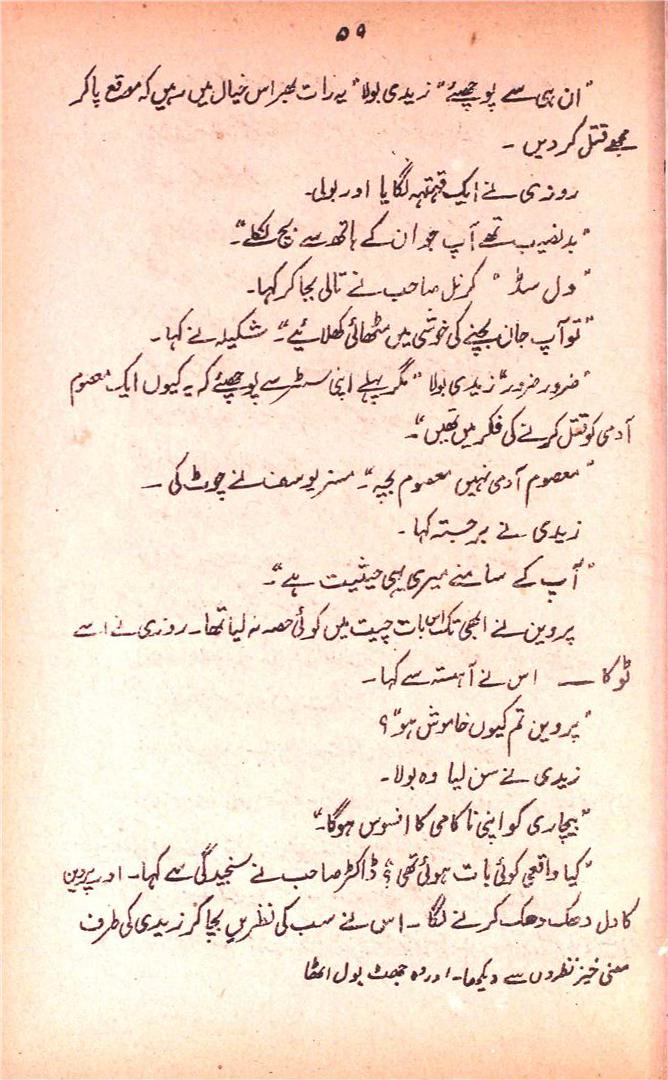 ۵۹
"ان ہی سے پوچھئے" زیدی بولا "یہ رات بھر اس خیال میں رہیں کہ موقع پا کر
مجھے قتل کر دیں ۔
روزی نے ایک قہقہہ لگایا اور بولی۔
"بدنصیب تھے آپ جو ان کے ہاتھ سے بچ نکلے"۔
"ول سڈ" کرنل صاحب نے تالی بجا کر کہا۔
"تو آپ جان بچنے کی خوشی میں مٹھائی کھلائیے"۔ شکیلہ نے کہا۔
"ضرور ضرور" زیدی بولا "مگر پہلے اپنی سسٹر سے پوچھئے کہ یہ کیوں ایک معصوم
آدمی کو قتل کرنے کی فکر میں تھیں"۔
"معصوم آدمی نہیں معصوم بچہ"۔ مسز یوسف نے چوٹ کی ۔
زیدی نے برجستہ کہا۔
"آپ کے سامنے میری یہی حیثیت ہے"۔
پروین نے ابھی تک اس بات چیت میں کوئی حصہ نہ لیا تھا۔ روزی نے اسے
ٹوکا ــ اس نے آہستہ سے کہا۔
"پروین تم کیوں خاموش ہو"؟
زیدی نے سن لیا وہ بولا۔
"بیچاری کو اپنی ناکامی کا افسوس ہوگا۔"
"کیا واقعی کوئی بات ہوئی تھی؟ ڈاکٹر صاحب نے سنجیدگی سے کہا۔ اور پروین
کا دل دھک دھک کرنے لگا ۔ اس نے سب کی نظریں بچا کر زیدی کی طرف
معنی خیز نظروں سے دیکھا۔ اور وہ جھٹ بول اٹھا